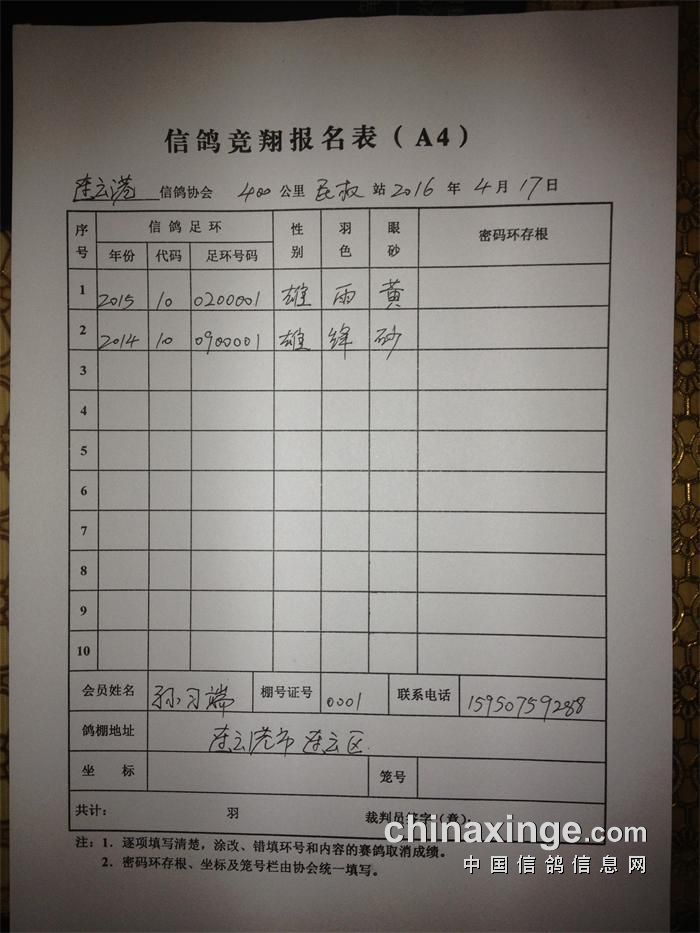 信鸽竞翔报名表（A4）
连云港 信鸽协会 400 公里 民权 站 2016 年 4 月 17 日
序号 信鸽足环 性别 羽色 眼砂 密码环存根
年份 代码 足环号码
1 2015 10 0200001 雄 雨 黄
2 2014 10 0900001 雄 绛 砂
3
4
5
6
7
8
9
10
会员姓名 孙习端 棚号证号 0001 联系电话 15950759288
鸽棚地址 连云港市连云区.
坐标 笼号
共计： 羽 裁判员签字（章）：
注：1．逐项填写清楚，涂改、错填环号和内容的赛鸽取消成绩。
2．密码环存根、坐标及笼号栏由协会统一填写。
chinaxinge.com
中国信鸽信息网